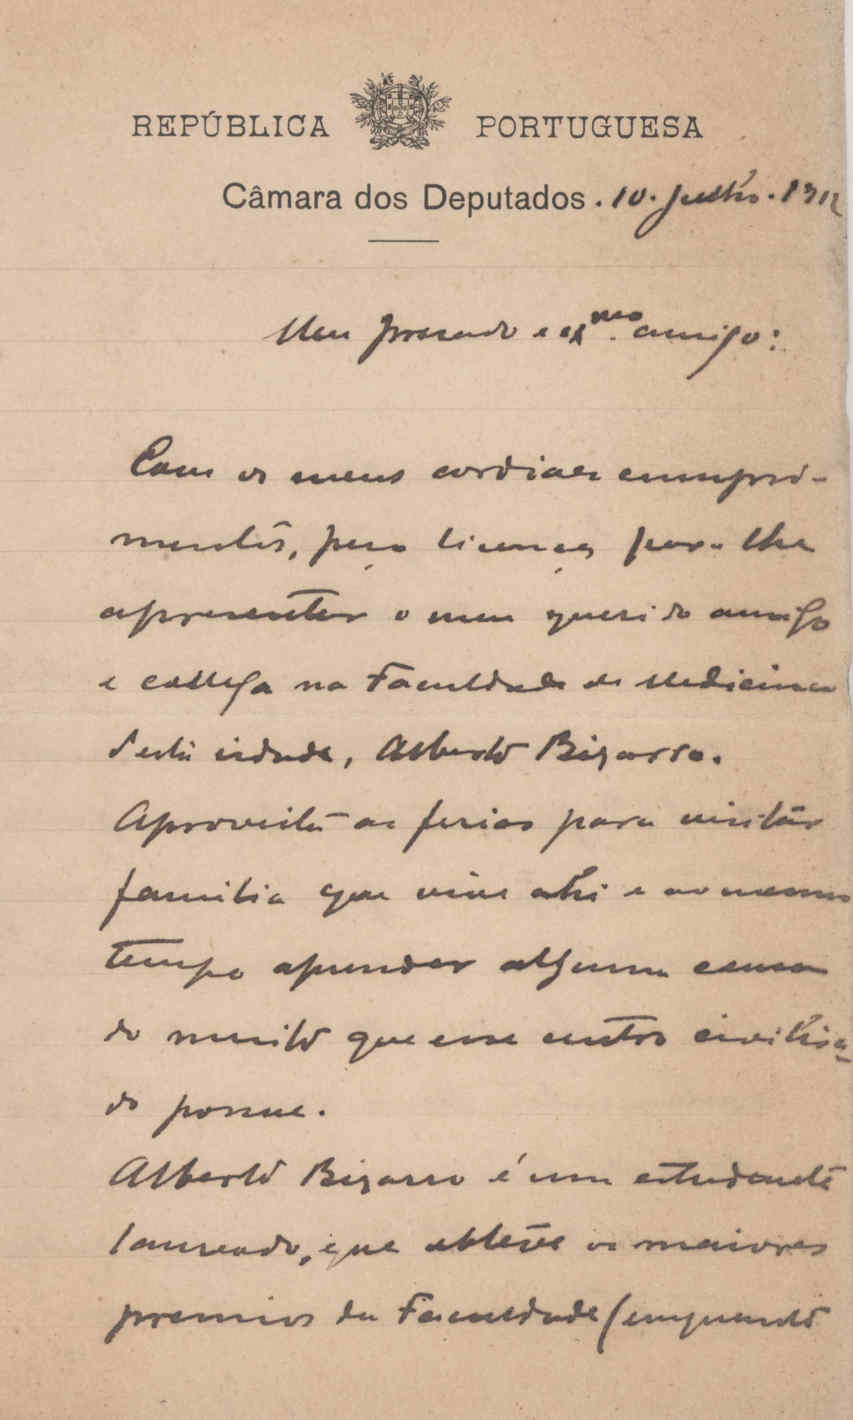 REPÚBLICA PORTUGUESA
Câmara dos Deputados. 10. Julho. 1912
Meu presado e exmo. amigo:
Com os meus cordiaes cumpri-
mentos, peço licença para lhe
apresentar o meu querido amigo
e collega na Faculdade de Medicina
desta cidade, Alberto Bizarro.
Aproveita as ferias para visitar
familia que vive ahi e ao mesmo
tempo aprender alguma cousa
do muito que esse centro civilisa-
do possue.
Alberto Bizarro é um estudante
laureado, que obteve os maiores
premios da Faculdade (emquanto